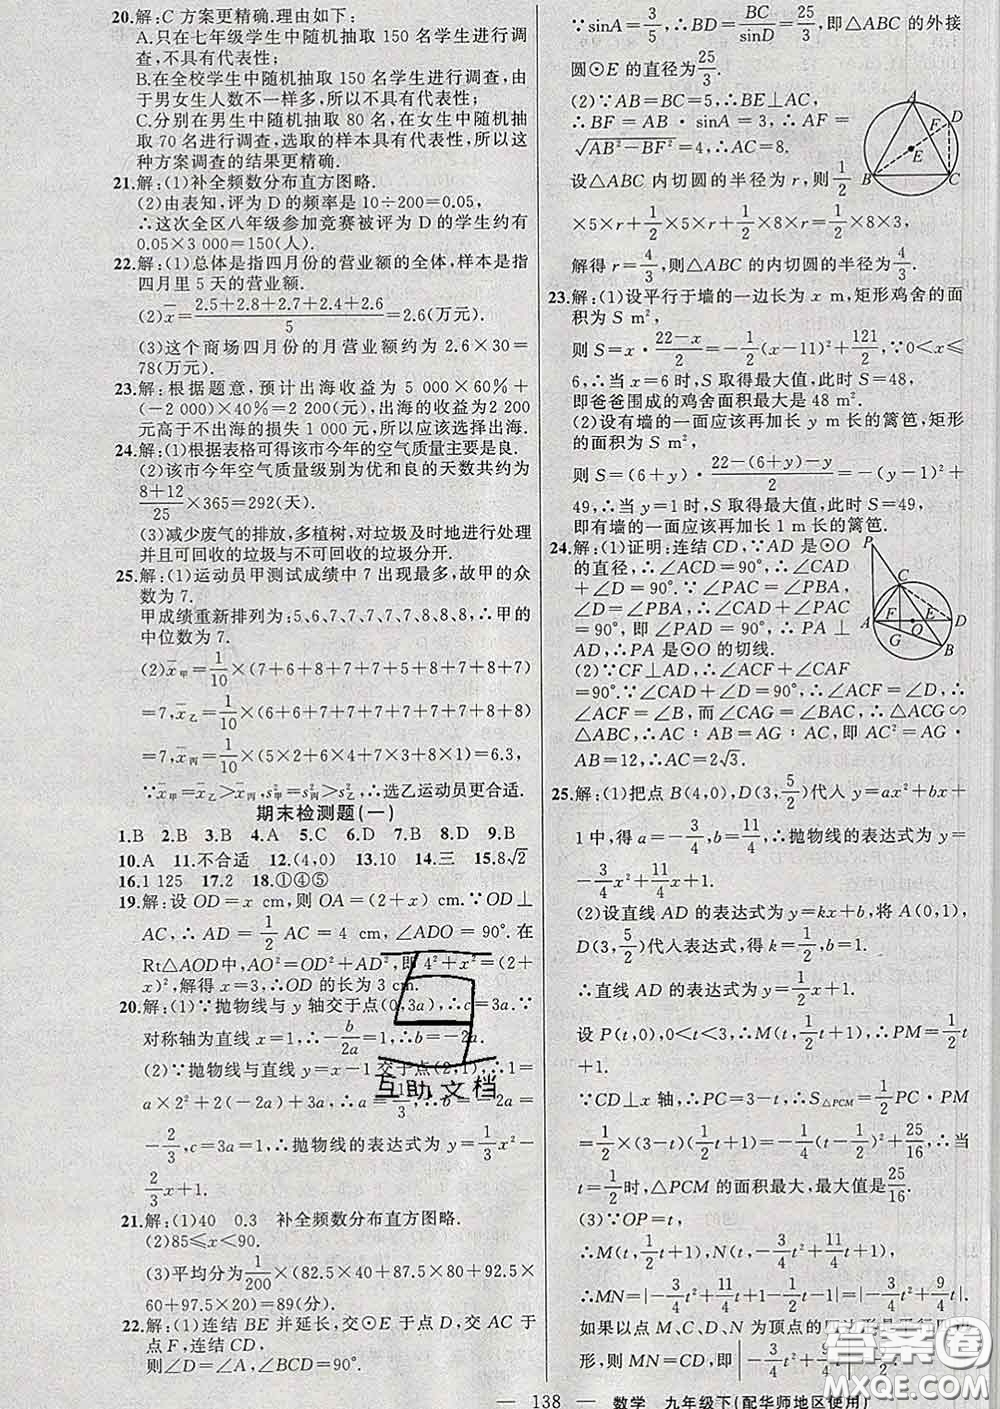 20.解:C 方案更精确.理由如下:
A.只在七年级学生中随机抽取 150 名学生进行调
查,不具有代表性;
B.在全校学生中随机抽取 150 名学生进行调查,由
于男女生人数不一样多,所以不具有代表性;
C.分别在男生中随机抽取 80 名,在女生中随机抽
取 70 名进行调查,选取的样本具有代表性,所以这
种方案调查的结果更精确.
21.解:(1)补全频数分布直方图略.
(2)由表知,评为 D 的频率是 10÷200=0.05,
∴这次全区八年级参加竞赛被评为 D 的学生约有
0.05×3 000=150(人).
22.解:(1)总体是指四月份的营业额的全体,样本是指
四月里 5 天的营业额.
(2)x̄=(2.5+2.8+2.7+2.4+2.6)/5=2.6(万元).
(3)这个商场四月份的月营业额约为 2.6×30=
78(万元).
23.解:根据题意,预计出海收益为 5 000×60%+
(-2 000)×40%=2 200(元),出海的收益为2 200
元高于不出海的损失1 000元,所以应该选择出海.
24.解:(1)根据表格可得该市今年的空气质量主要是良.
(2)该市今年空气质量级别为优和良的天数共约为
(8+12)/25×365=292(天).
(3)减少废气的排放,多植树,对垃圾及时地进行处理
并且可回收的垃圾与不可回收的垃圾分开.
25.解:(1)运动员甲测试成绩中 7 出现最多,故甲的众
数为 7.
甲成绩重新排列为:5,6,7,7,7,7,7,8,8,8,∴甲的
中位数为 7.
(2)x̄甲=1/10×(7+6+8+7+7+5+8+7+8+7)
=7,x̄乙=1/10×(6+6+7+7+7+7+7+7+8+8)
=7,x̄丙=1/10×(5×2+6×4+7×3+8×1)=6.3,
∵x̄甲=x̄乙>x̄丙,s²甲>s²丙>s²乙,∴选乙运动员更合适.
期末检测题(一)
1.B 2.B 3.B 4.A 5.C 6.D 7.B 8.D 9.B
10.A 11.不合适 12.(4,0) 13.10 14.三 15.8√2
16.1 125 17.2 18.①④⑤
19.解:设 OD=x cm,则 OA=(2+x) cm.∵OD⊥
AC,∴AD=1/2 AC=4 cm,∠ADO=90°.在
Rt△AOD中,AO²=OD²+AD²,即 4²+x²=(2+
x)²,解得 x=3,∴OD 的长为 3 cm.
20.解:(1)∵抛物线与 y 轴交于点(0,3a),∴c=3a.∵
对称轴为直线 x=1,∴-b/2a=1,∴b=-2a.
(2)∵抛物线与直线 y=x-1 交于点(2,1),∴1=
a×2²+2×(-2a)+3a,∴a=1/3,∴b=-2a=
-2/3,c=3a=1,∴抛物线的表达式为 y=1/3x²-
2/3x+1.
21.解:(1)40 0.3 补全频数分布直方图略.
(2)85≤x<90.
(3)平均分为1/200×(82.5×40+87.5×80+92.5×
60+97.5×20)=89(分).
22.解:(1)连结 BE 并延长,交⊙E 于点 D,交 AC 于
点 F,连结 CD,
则∠D=∠A,∠BCD=90°.
∵sinA=3/5,∴BD=BC/sinD=25/3,即△ABC 的外接
圆⊙E 的直径为25/3.
(2)∵AB=BC=5,∴BE⊥AC,
∴BF=AB·sinA=3,∴AF=
√(AB²-BF²)=4,∴AC=8.
设△ABC 内切圆的半径为 r,则1/2
×5×r+1/2×5×r+1/2×8×r=1/2×8×3,
解得 r=4/3,则△ABC 的内切圆的半径为4/3.
23.解:(1)设平行于墙的一边长为 x m,矩形鸡舍的面
积为 S m²,
则 S=x·(22-x)/2=-1/2(x-11)²+121/2,∵0<x≤
6,∴当 x=6 时,S 取得最大值,此时 S=48,
即爸爸围成的鸡舍面积最大是 48 m².
(2)设有墙的一面应该再加长 y m长的篱笆,矩形
的面积为 S m²,
则 S=(6+y)·(22-(6+y)-y)/2=-(y-1)²+
49,∴当 y=1 时,S 取得最大值,此时 S=49,
即有墙的一面应该再加长 1 m长的篱笆.
24.解:(1)证明:连结 CD,∵AD 是⊙O
的直径,∴∠ACD=90°,∴∠CAD
+∠D=90°.∵∠PAC=∠PBA,
∠D=∠PBA,∴∠CAD+∠PAC
=90°,即∠PAD=90°,∴PA⊥
AD,∴PA 是⊙O 的切线.
(2)∵CF⊥AD,∴∠ACF+∠CAF
=90°.∵∠CAD+∠D=90°,∴∠ACF=∠D,∴
∠ACF=∠B,而∠CAG=∠BAC,∴△ACG∽
△ABC,∴AC:AB=AG:AC,即 AC²=AG·
AB=12,∴AC=2√3.
25.解:(1)把点 B(4,0),D(3,5/2)代入 y=ax²+bx+
1中,得 a=-3/4,b=11/4,∴抛物线的表达式为 y=
-3/4x²+11/4x+1.
(2)设直线 AD 的表达式为 y=kx+b,将 A(0,1),
D(3,5/2)代入表达式,得 k=1/2,b=1.
∴直线 AD 的表达式为 y=1/2x+1.
设 P(t,0),0<t<3,∴M(t,1/2t+1),∴PM=1/2t
+1.
∵CD⊥x 轴,∴PC=3-t,∴S△PCM=1/2PC·PM
=1/2×(3-t)(1/2t+1)=-1/4(t-1/2)²+25/16,∴当
t=1/2时,△PCM 的面积最大,最大值是25/16.
(3)∵OP=t,
∴M(t,1/2t+1),N(t,-3/4t²+11/4t+1),
∴MN=|-3/4t²+11/4t+1-1/2t-1|=|-3/4t²+9/4t|.
如果以点 M、C、D、N 为顶点的四边形是平行四边
形,则 MN=CD,即|-3/4t²+9/4t|=
A
F
D
E
B
C
P
C
A
F
O
E
D
G
B
互助文档
答案圈
MXQE.COM
— 138 — 数学 九年级下(配华师地区使用)